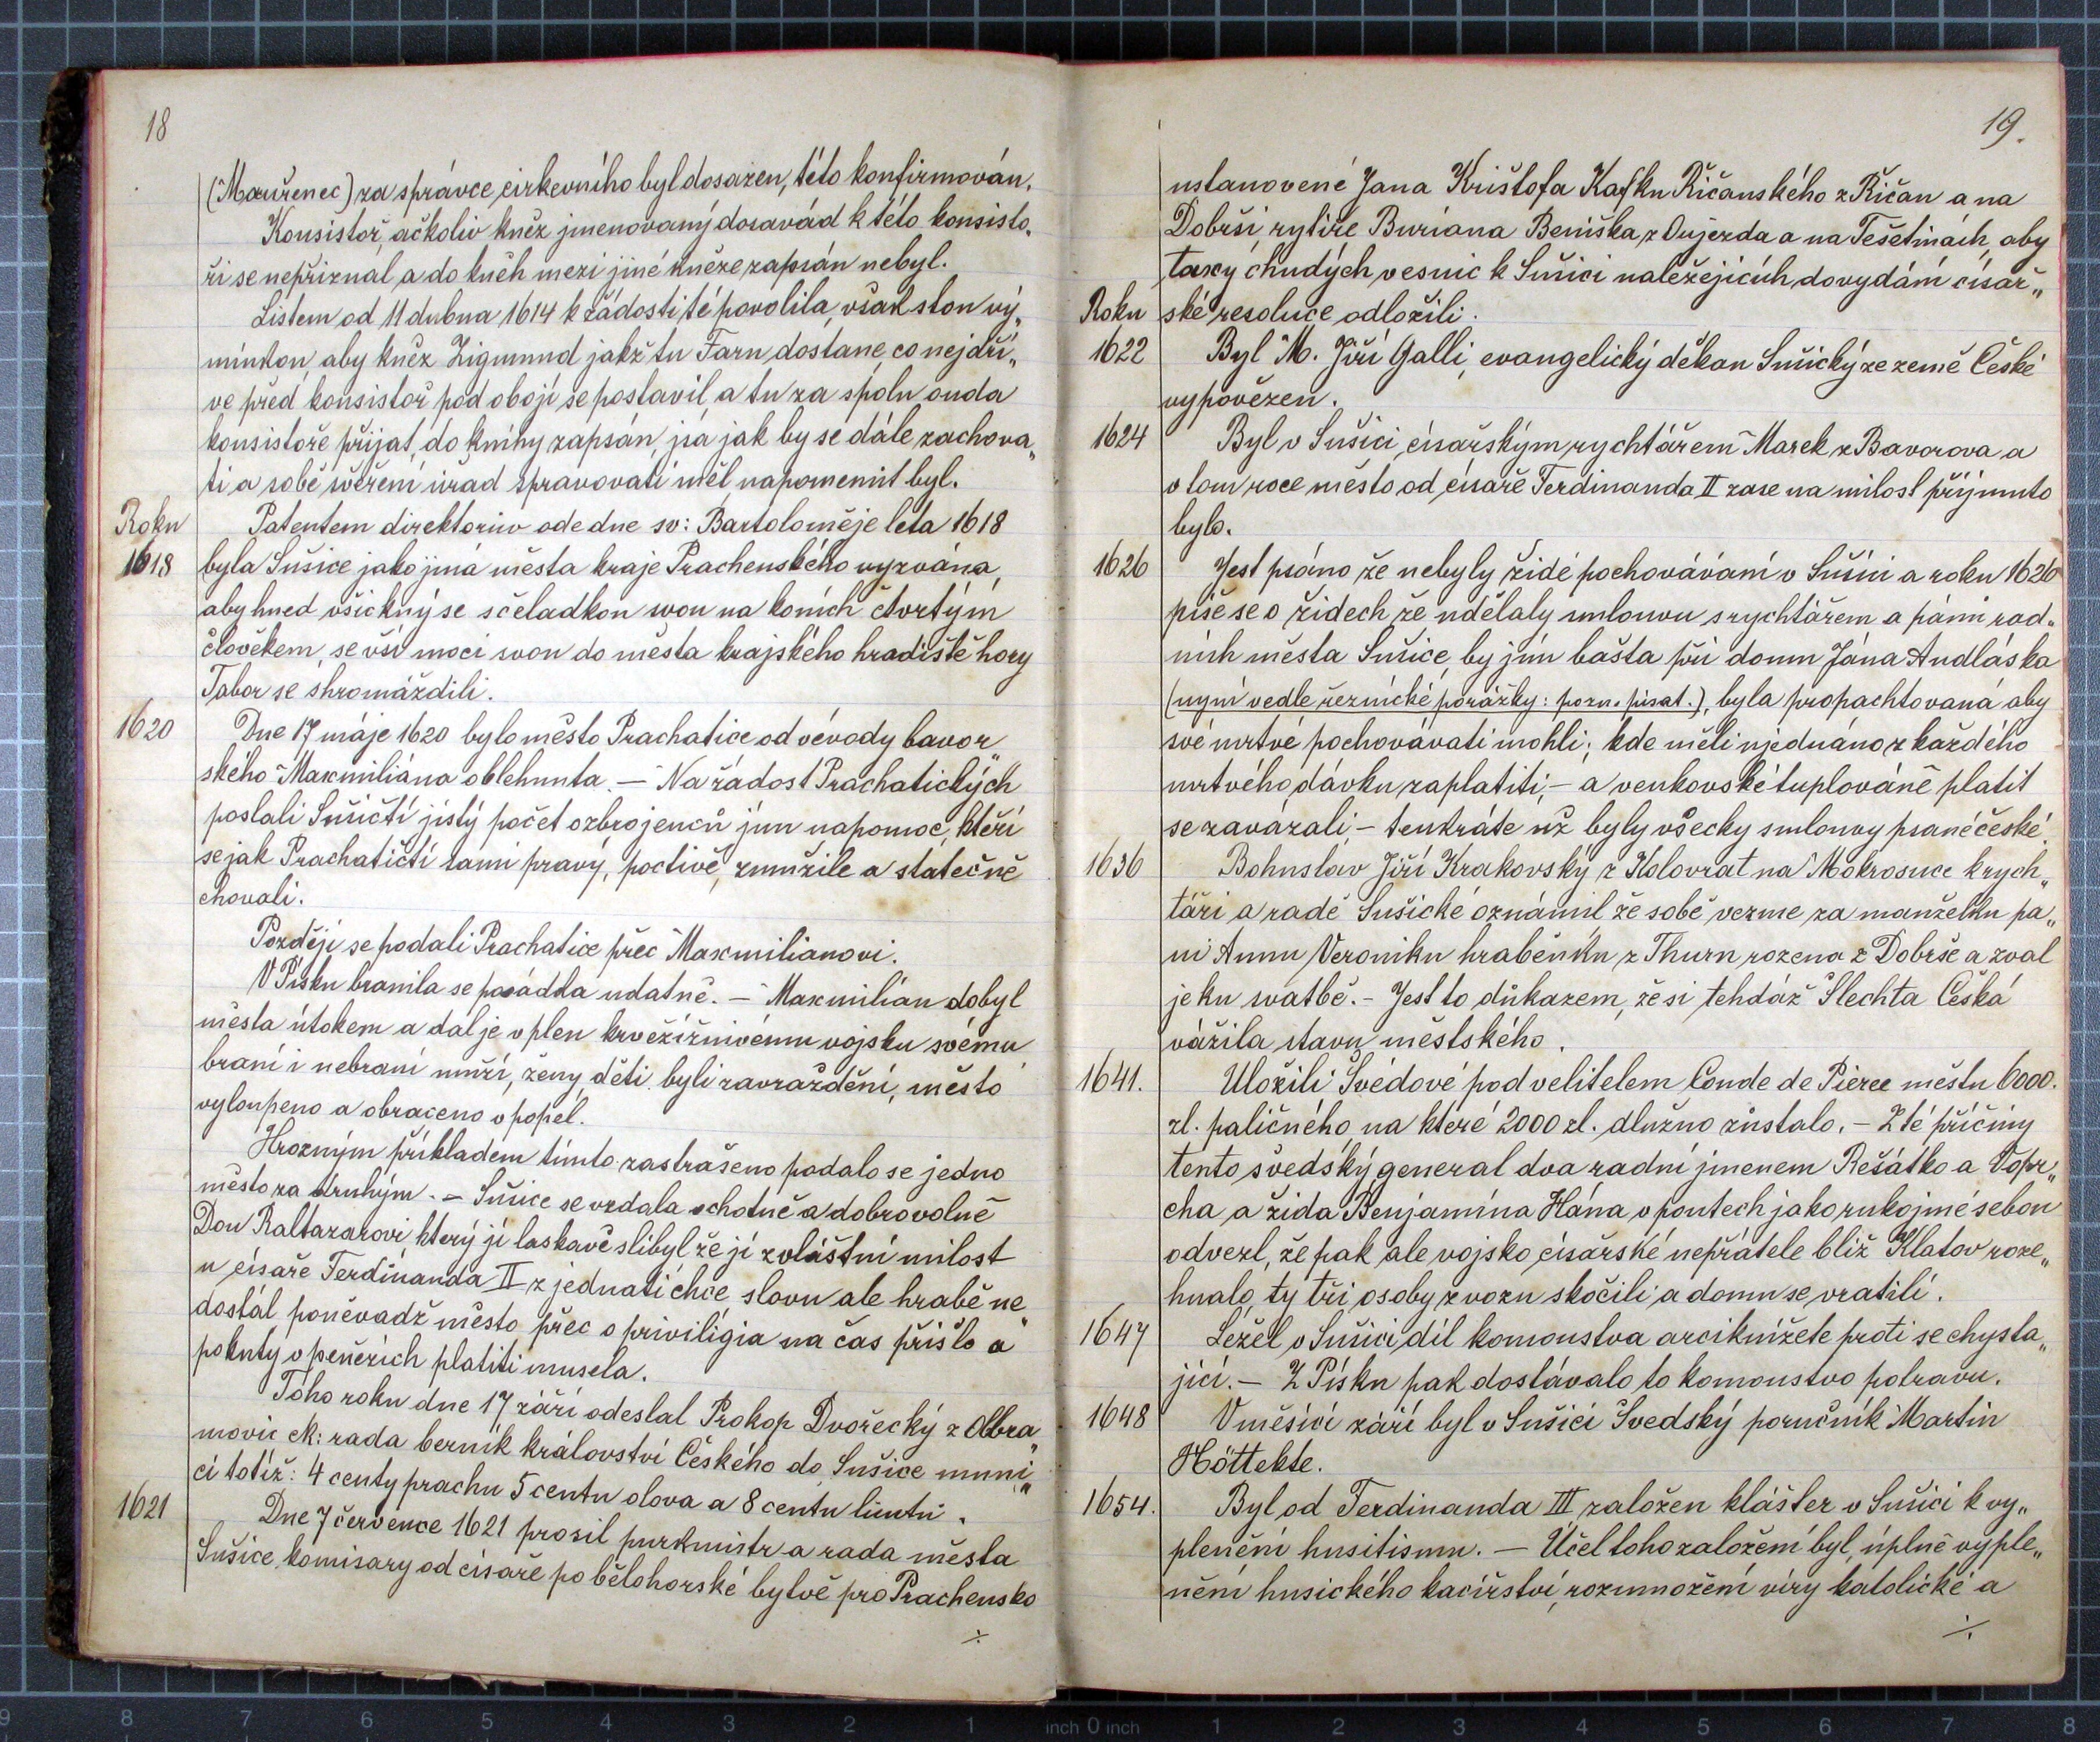 18
(Mouřenec) za správce cirkevního byl dosazen, této konfirmován.
Konsistoř, ačkoliv kněz jmenovaný dosavád k této konsisto„
ři se nepřiznal a do kněh mezi jiné kněze zapsán nebyl.
Listem od 11 dubna 1614 k žádosti té povolila, však s tou vý„
mínkou, aby kněz Zigmund jakž tu Faru dostane, co nejdří„
ve před konsistoř pod obojí se postavil a tu za spolu ouda
konsistoře přijat, do knihy zapsán, jsa jak by se dále zachova„
ti a sobě svěření úřad spravovati měl napomenut byl.
Roku Patentem direktoriw ode dne sv: Bartoloměje léta 1618
1618 byla Sušice jako jiná města kraje Prachenského vyzvána,
aby hned všickný se s čeladkou svou na koních čtvrtým
člověkem, se vší moci svou do města krajského hradiště hory
Tabor se shromáždili.
1620 Dne 17 máje 1620 bylo město Prachatice od vévody bavor„
ského Maxmiliána oblehnuta. — Na žádost Prachatických
poslali Sušičtí jistý počet ozbrojenců jim na pomoc, kteří
se jak Prachatičtí sami pravý, poctivě, zmužile a statečně
chovali.
Později se podali Prachatice přec Maxmilianovi.
V Písku branila se posádka udatně. — Maxmilián dobyl
města útokem a dal je v plen krvežíznivému vojsku svému
braní i nebraní muži, ženy, děti byli zavraždění, město
vyloupeno a obraceno v popel.
Hrozným příkladem tímto zastrašeno podalo se jedno
město za druhým. — Sušice se vzdala ochotně a dobrovolně
Don Baltazarovi který jí laskavě slíbyl že jí zvláštní milost
u císaře Ferdinanda II zjednati chce, slovu ale hrabě ne„
dostál poněvadž město přec o priviligia na čas přišlo a
pokuty v peněžích platiti musela.
Toho roku dne 17 září odeslal Prokop Dvořecký z Olbra„
movic ck: rada berník království Českého do Sušice muni„
ci totíž: 4 centy prachu 5 centu olova a 8 centu luntů.
1621 Dne 7 července 1621 prosil purkmistr a rada města
Sušice, komisary od císaře po bělohorské bytvě pro Prachensko
⁒
19.
ustanovené Jana Krištofa Kafku Řičanského z Řičan a na
Dobrši, rytíře Buriana Beniška z Oujezda a na Tešetinách, aby
taxy chudých vesnic k Sušici naležejících do vydání císař„
Roku ské resoluce odložili.
1622 Byl M. Jiří Galli, evangelický děkan Sušický ze země České
vypovězen.
1624 Byl v Sušici císařským rychtářem Marek z Bavorova a
v tom roce město od císaře Ferdinanda II zase na milost přijmuto
bylo.
1626 Jest psáno že nebyly židé pochovávaní v Sušici a roku 1626
píše se o židech že udělaly smlouvu s rychtářem a pámi rad„
ních města Sušice, by jím bašta při domu Jána Andláska
(nyní vedle řeznické porážky: pozn. pisat.), byla propachtovaná aby
své mrtvé pochovávati mohli; kde měli ujednáno z každého
mrtvého dávku zaplatiti; — a venkovské tuplováně platit
se zavázali — tenkráte už byly všecky smlouvy psané české.
1636 Bohuslav Jiří Krakovský z Kolovrat na Mokrosuce k rych„
táři a radě Sušické oznámil že sobě vezme za manželku pa„
ni Annu Veroniku hraběnku z Thurn rozena z Dobrše a zval
je ku svatbě. — Jest to důkazem, že si tehdáž Šlechta Česká
vážila stavu městského.
1641. Uložili Švédové pod velitelem Conde de Pieree městu 6000.
zl. paličného, na které 2000 zl. dlužno zůstalo. — Z té příčiny
tento švedský general dva radní jmenem Rešátko a Vopr„
cha a žida Benjamína Hána v poutech jako rukojmé sebou
odvezl, že pak ale vojsko císařské nepřátele blíž Klatov roze„
hnalo, ty tři osoby z vozu skočili a domu se vratili.
1647 Ležel v Sušici díl komonstva arciknížete proti se chysta„
jící. — Z Písku pak dostávalo to komonstvo potravu.
1648 V měsíci září byl v Sušici Švedský poručník Martin
Höttekte.
1654. Byl od Ferdinanda III založen klášter v Sušici k vy„
plenění husitismu. — Účel toho založení byl, úplně vyple„
nění husického kacířství, rozmnožení víry katolické a
⁒
9 8 7 6 5 4 3 2 1 inch 0 inch 1 2 3 4 5 6 7 8